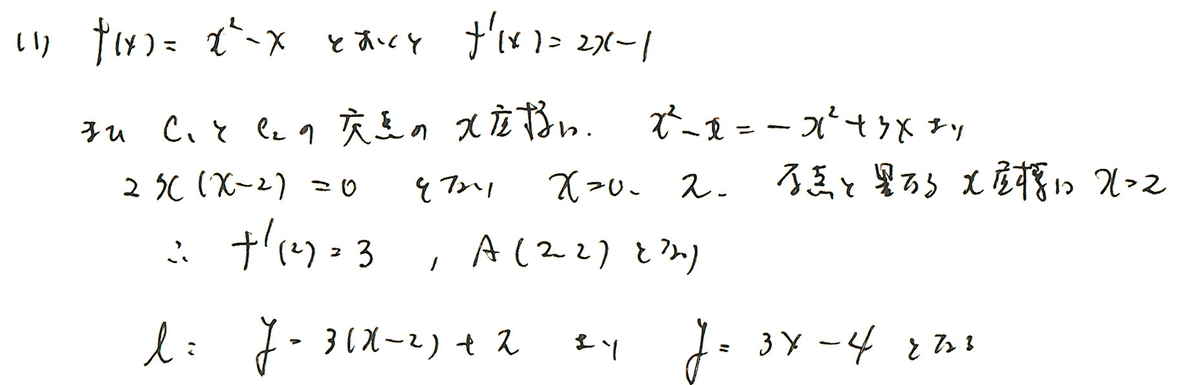 (1) f(x) = x² - x とおくと f'(x) = 2x-1
また C₁ と C₂ の 交点の x座標は. x² - x = -x² + 3x より
2x(x-2) = 0 となり x=0. 2. 原点と異なる x座標は x=2
∴ f'(2) = 3 , A(2 2) となり
l: y = 3(x-2) + 2 より y = 3x - 4 となる